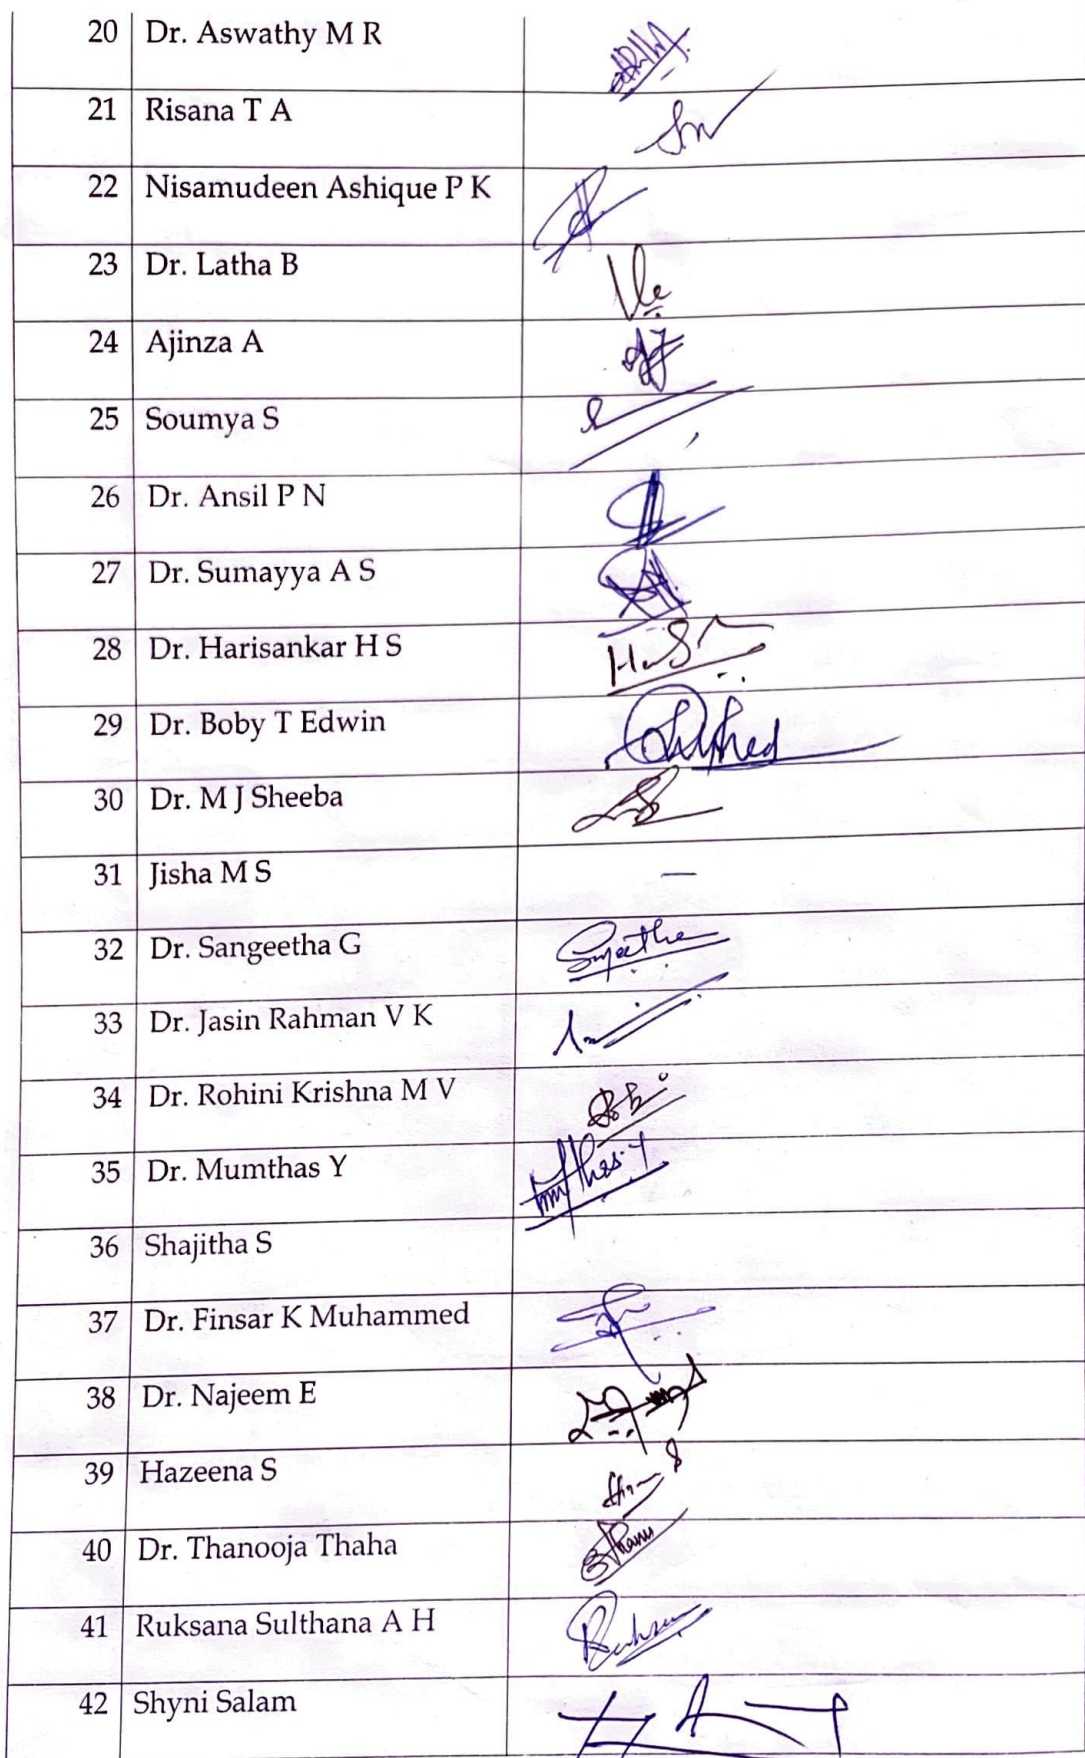 20 Dr. Aswathy M R
21 Risana T A
22 Nisamudeen Ashique P K
23 Dr. Latha B
24 Ajinza A
25 Soumya S
26 Dr. Ansil P N
27 Dr. Sumayya A S
28 Dr. Harisankar H S
29 Dr. Boby T Edwin
30 Dr. M J Sheeba
31 Jisha M S —
32 Dr. Sangeetha G
33 Dr. Jasin Rahman V K
34 Dr. Rohini Krishna M V
35 Dr. Mumthas Y
36 Shajitha S
37 Dr. Finsar K Muhammed
38 Dr. Najeem E
39 Hazeena S
40 Dr. Thanooja Thaha
41 Ruksana Sulthana A H
42 Shyni Salam